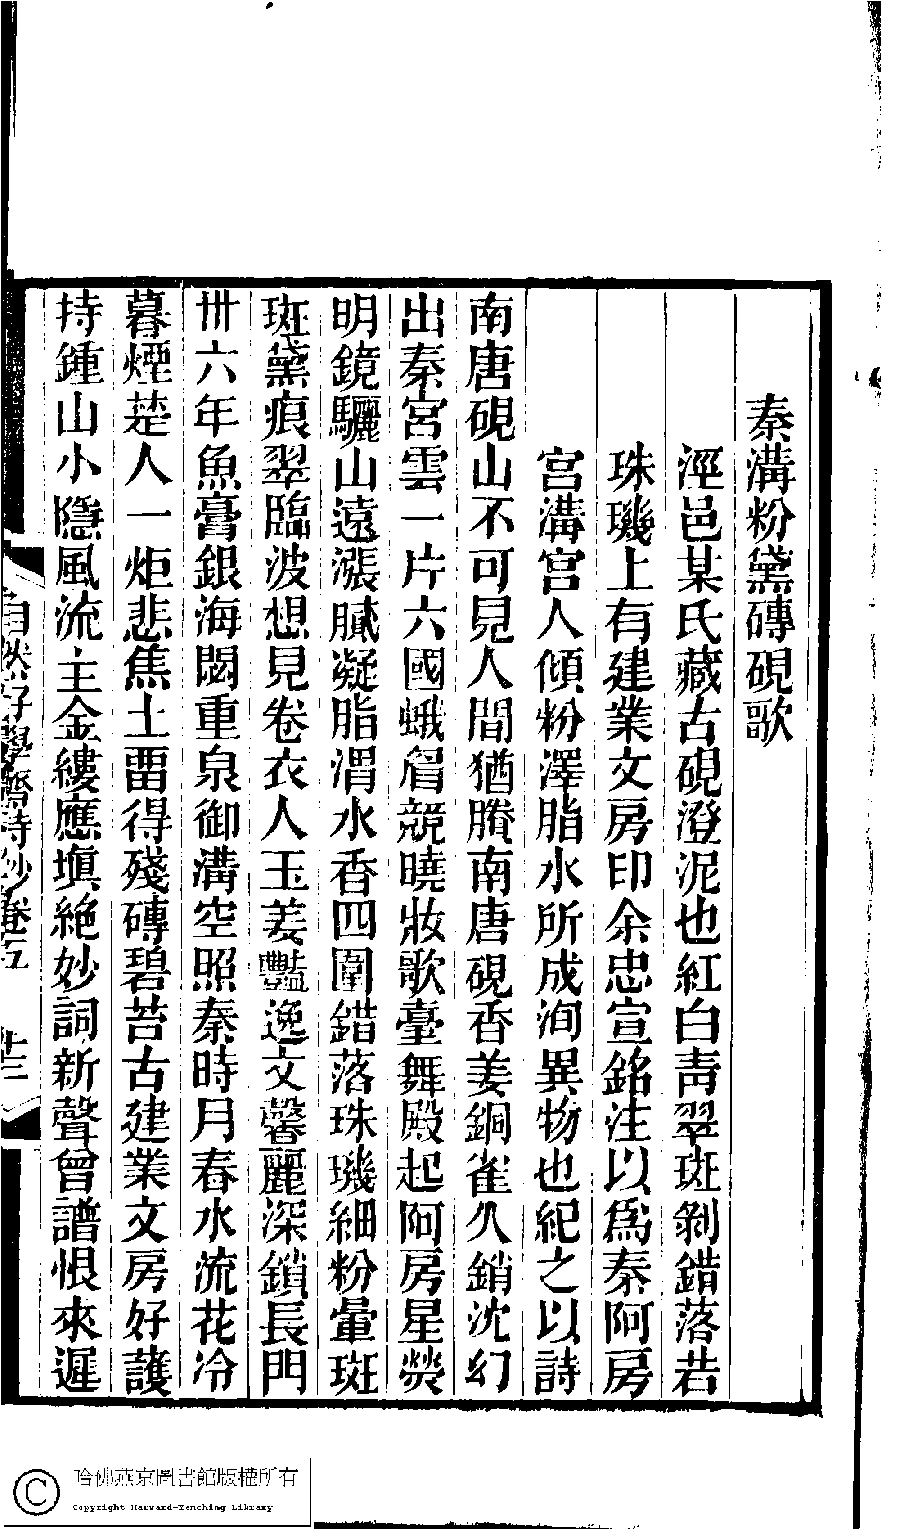 秦溝粉黛磚硯歌
涇邑某氏藏古硯澄泥也紅白靑翠斑剝錯落若
珠璣上有建業文房印余忠宣銘注以爲秦阿房
宮溝宮人傾粉澤脂水所成洵異物也紀之以詩
南唐硯山不可見人間猶賸南唐硯香姜銅雀久銷沈幻
出秦宮雲一片六國蛾眉競曉妝歌臺舞殿起阿房星熒
明鏡驪山遠漲膩凝脂渭水香四圍錯落珠璣細粉暈斑
斑黛痕翠臨波想見卷衣人玉姜豔逸文馨麗深鎖長門
卅六年魚膏銀海閟重泉御溝空照秦時月春水流花冷
暮煙楚人一炬悲焦土畱得殘磚碧苔古建業文房好護
持鍾山小隱風流主金縷應塡絶妙詞新聲曾譜恨來遲
自怏好學齋詩鈔卷五
十三
哈佛燕京圖書館版權所有
Copyright Harvard-Yenching Library